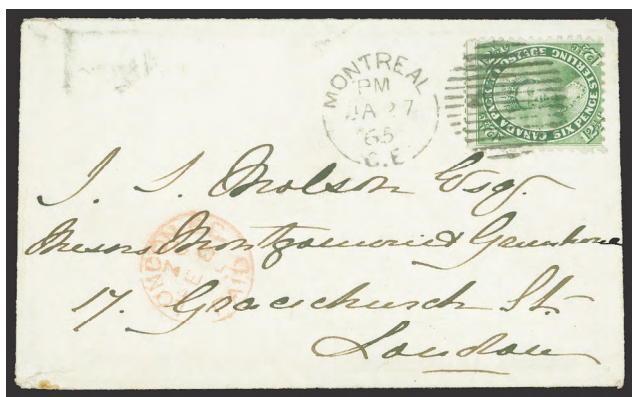 MONTREAL
PM
JA 27
65
C.E
CANADA PACKET POSTAGE
SIX PENCE STERLING
12½
J. S. Molson Esq.
Messrs Montgomerie &
17. Gracechurch St.
London
LONDON
PAID